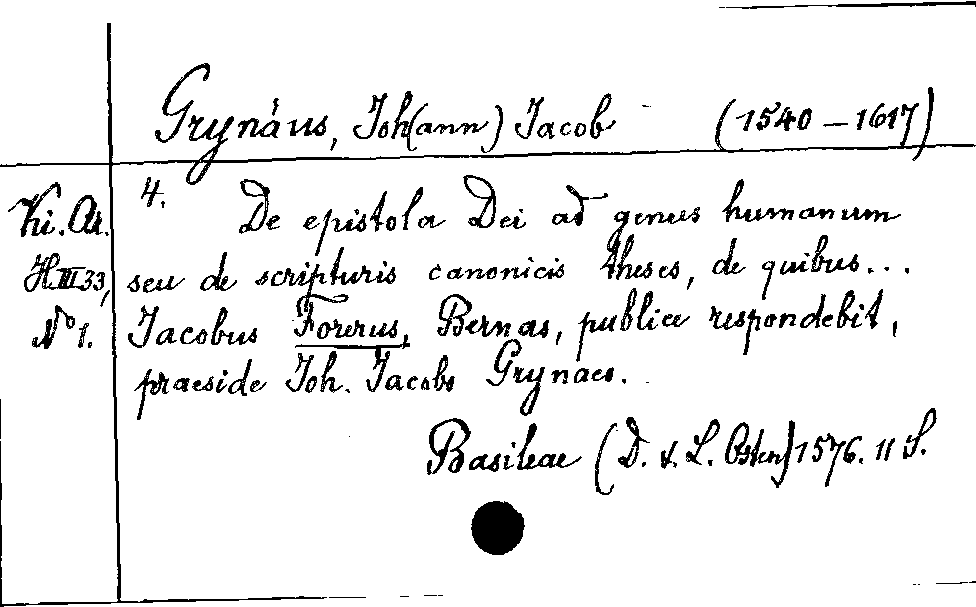 Grynäus, Joh(ann) Jacob (1540–1617)
Ki. Ar.
H. III 33,
No 1.
4. De epistola Dei ad genus humanum
seu de scripturis canonicis theses, de quibus...
Jacobus Forerus, Bernas, publice respondebit,
praeside Joh. Jacobo Grynaeo.
Basileae (D. & L. Osten) 1576. 11 S.